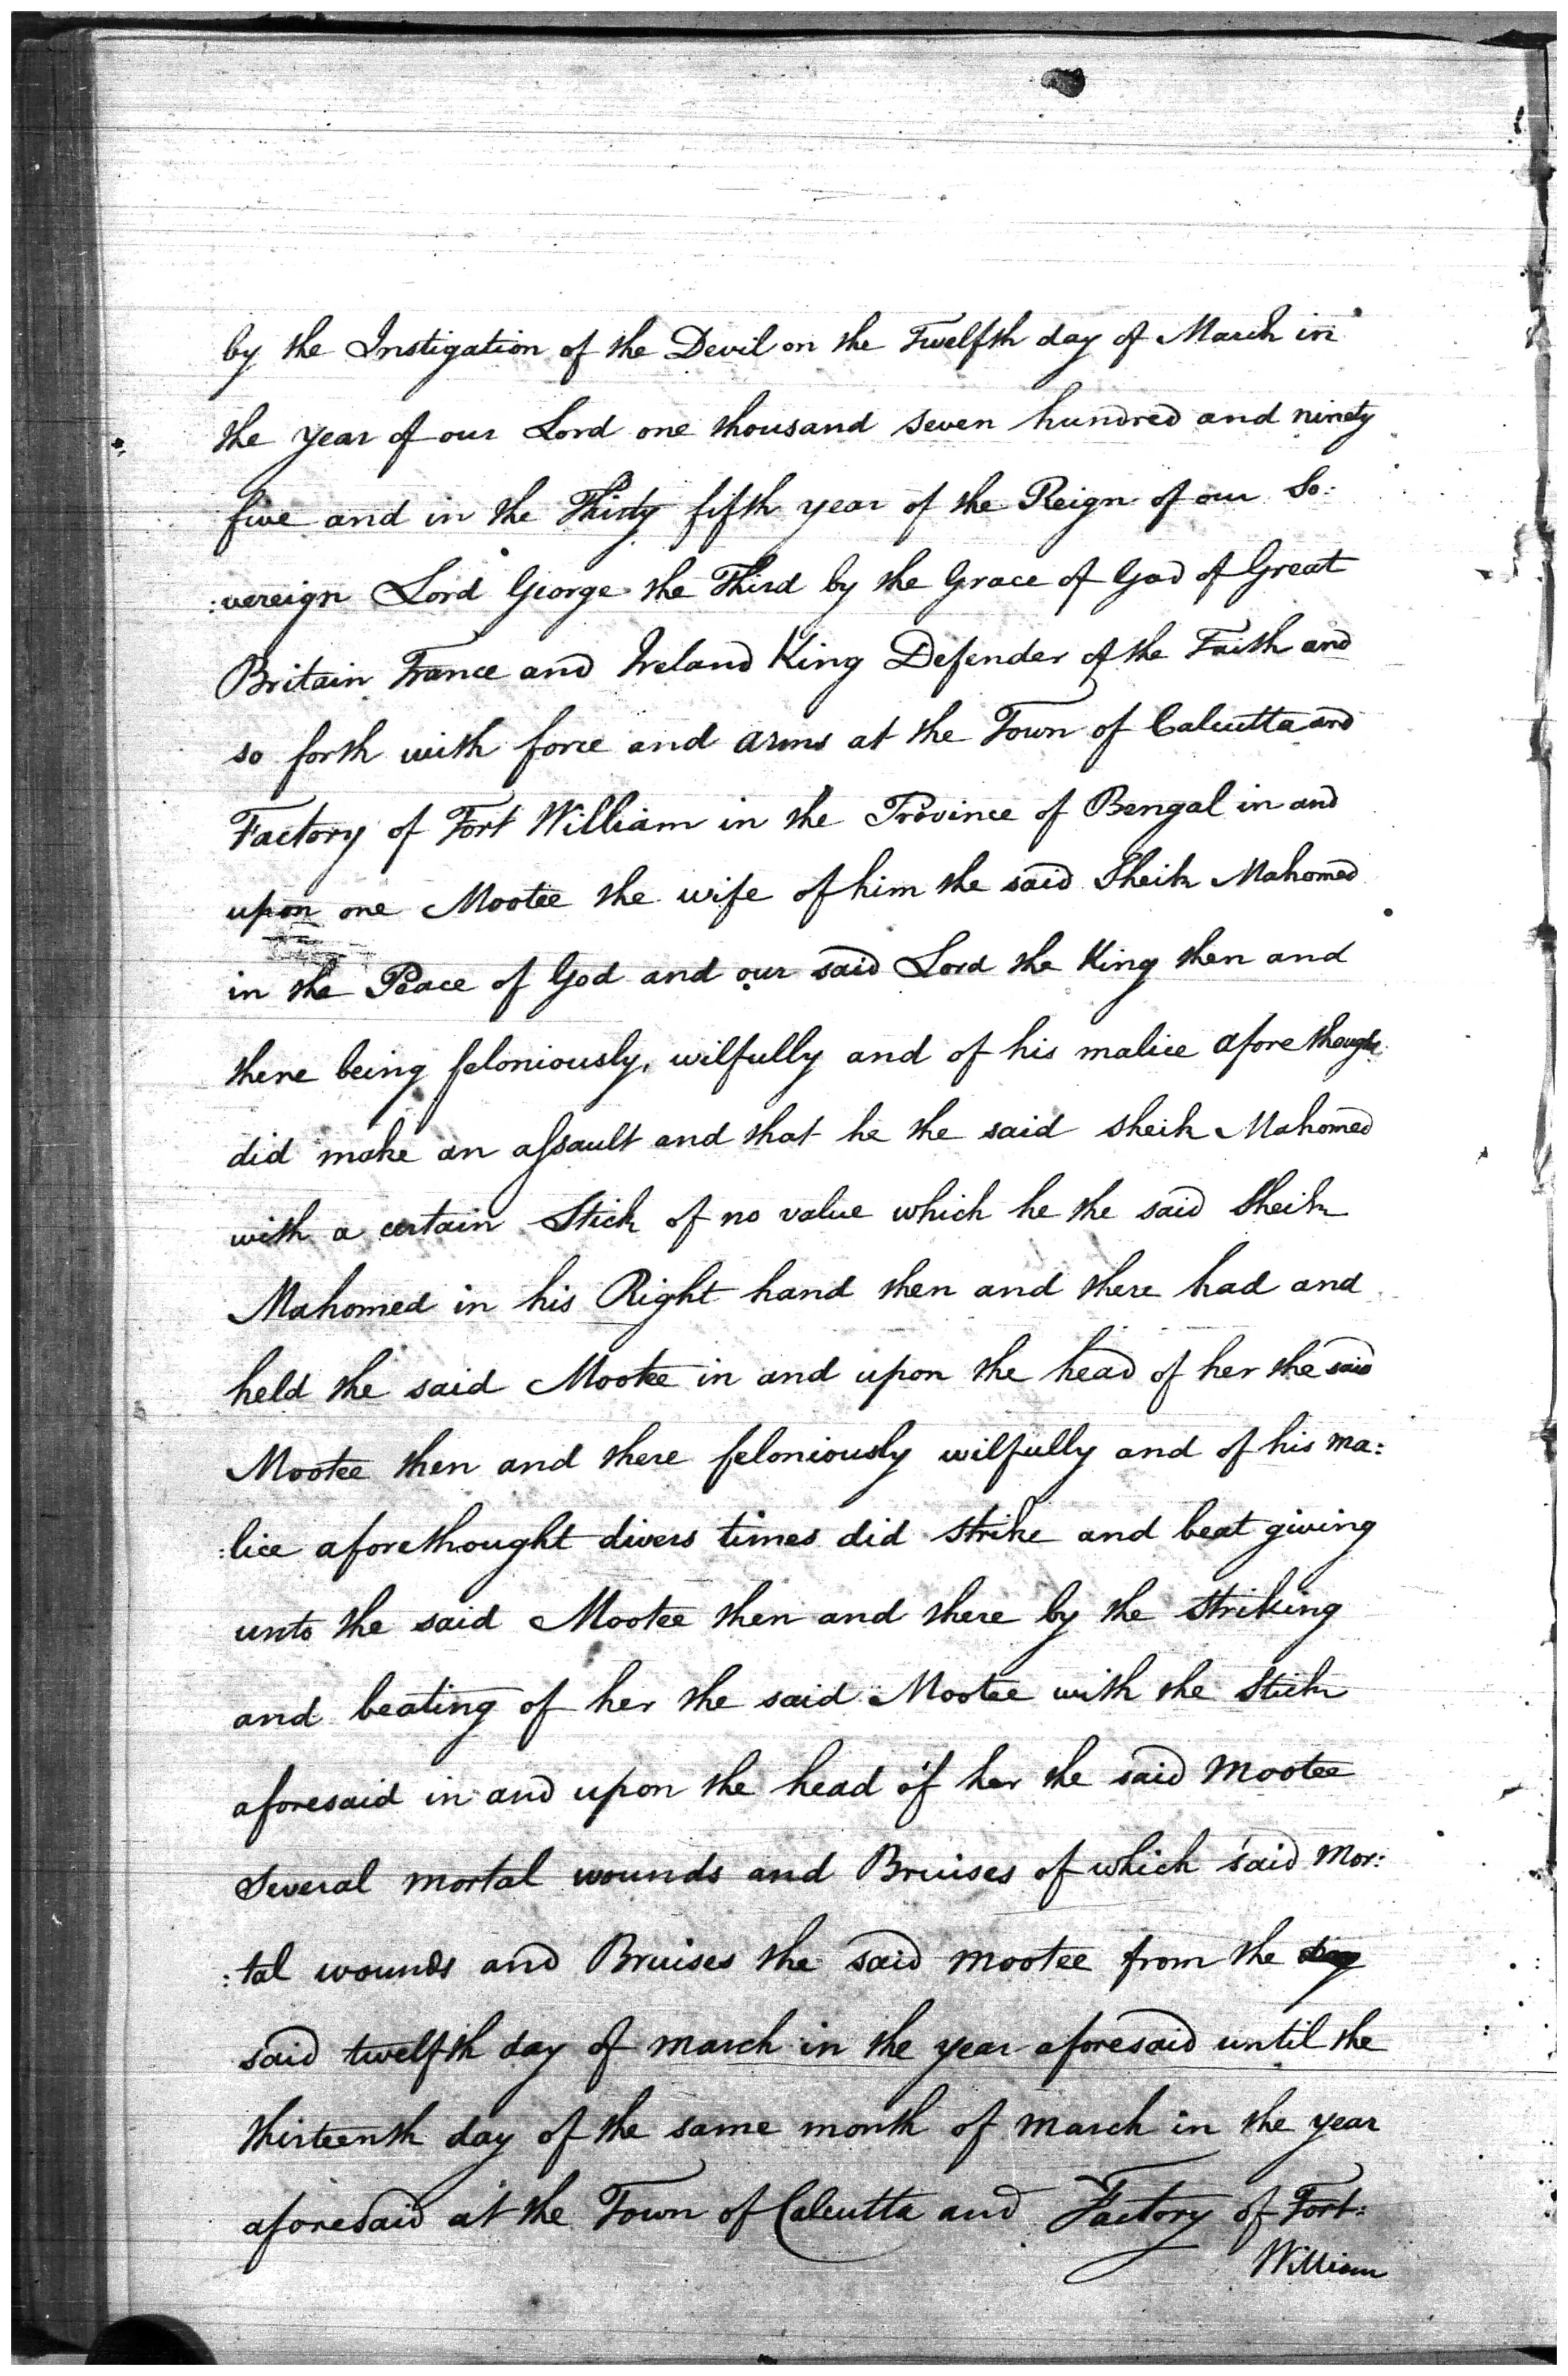 by the Instigation of the Devil on the Twelfth day of March in
the year of our Lord one thousand seven hundred and ninety
five and in the Thirty fifth year of the Reign of our So:
:vereign Lord George the Third by the Grace of God of Great
Britain France and Ireland King Defender of the Faith and
so forth with force and arms at the Town of Calcutta and
Factory of Fort William in the Province of Bengal in and
upon one Mootee the wife of him the said Sheik Mahomed
in the Peace of God and our said Lord the King then and
there being feloniously, wilfully and of his malice afore thought
did make an assault and that he the said Sheik Mahomed
with a certain Stick of no value which he the said Sheik
Mahomed in his Right hand then and there had and
held the said Mootee in and upon the head of her the said
Mootee then and there feloniously wilfully and of his ma:
:lice aforethought divers times did strike and beat giving
unto the said Mootee then and there by the striking
and beating of her the said Mootee with the Stick
aforesaid in and upon the head of her the said Mootee
several mortal wounds and Bruises of which said Mor:
:tal wounds and Bruises the said Mootee from the
said twelfth day of March in the year aforesaid until the
thirteenth day of the same month of March in the year
aforesaid at the Town of Calcutta and Factory of Fort:
William